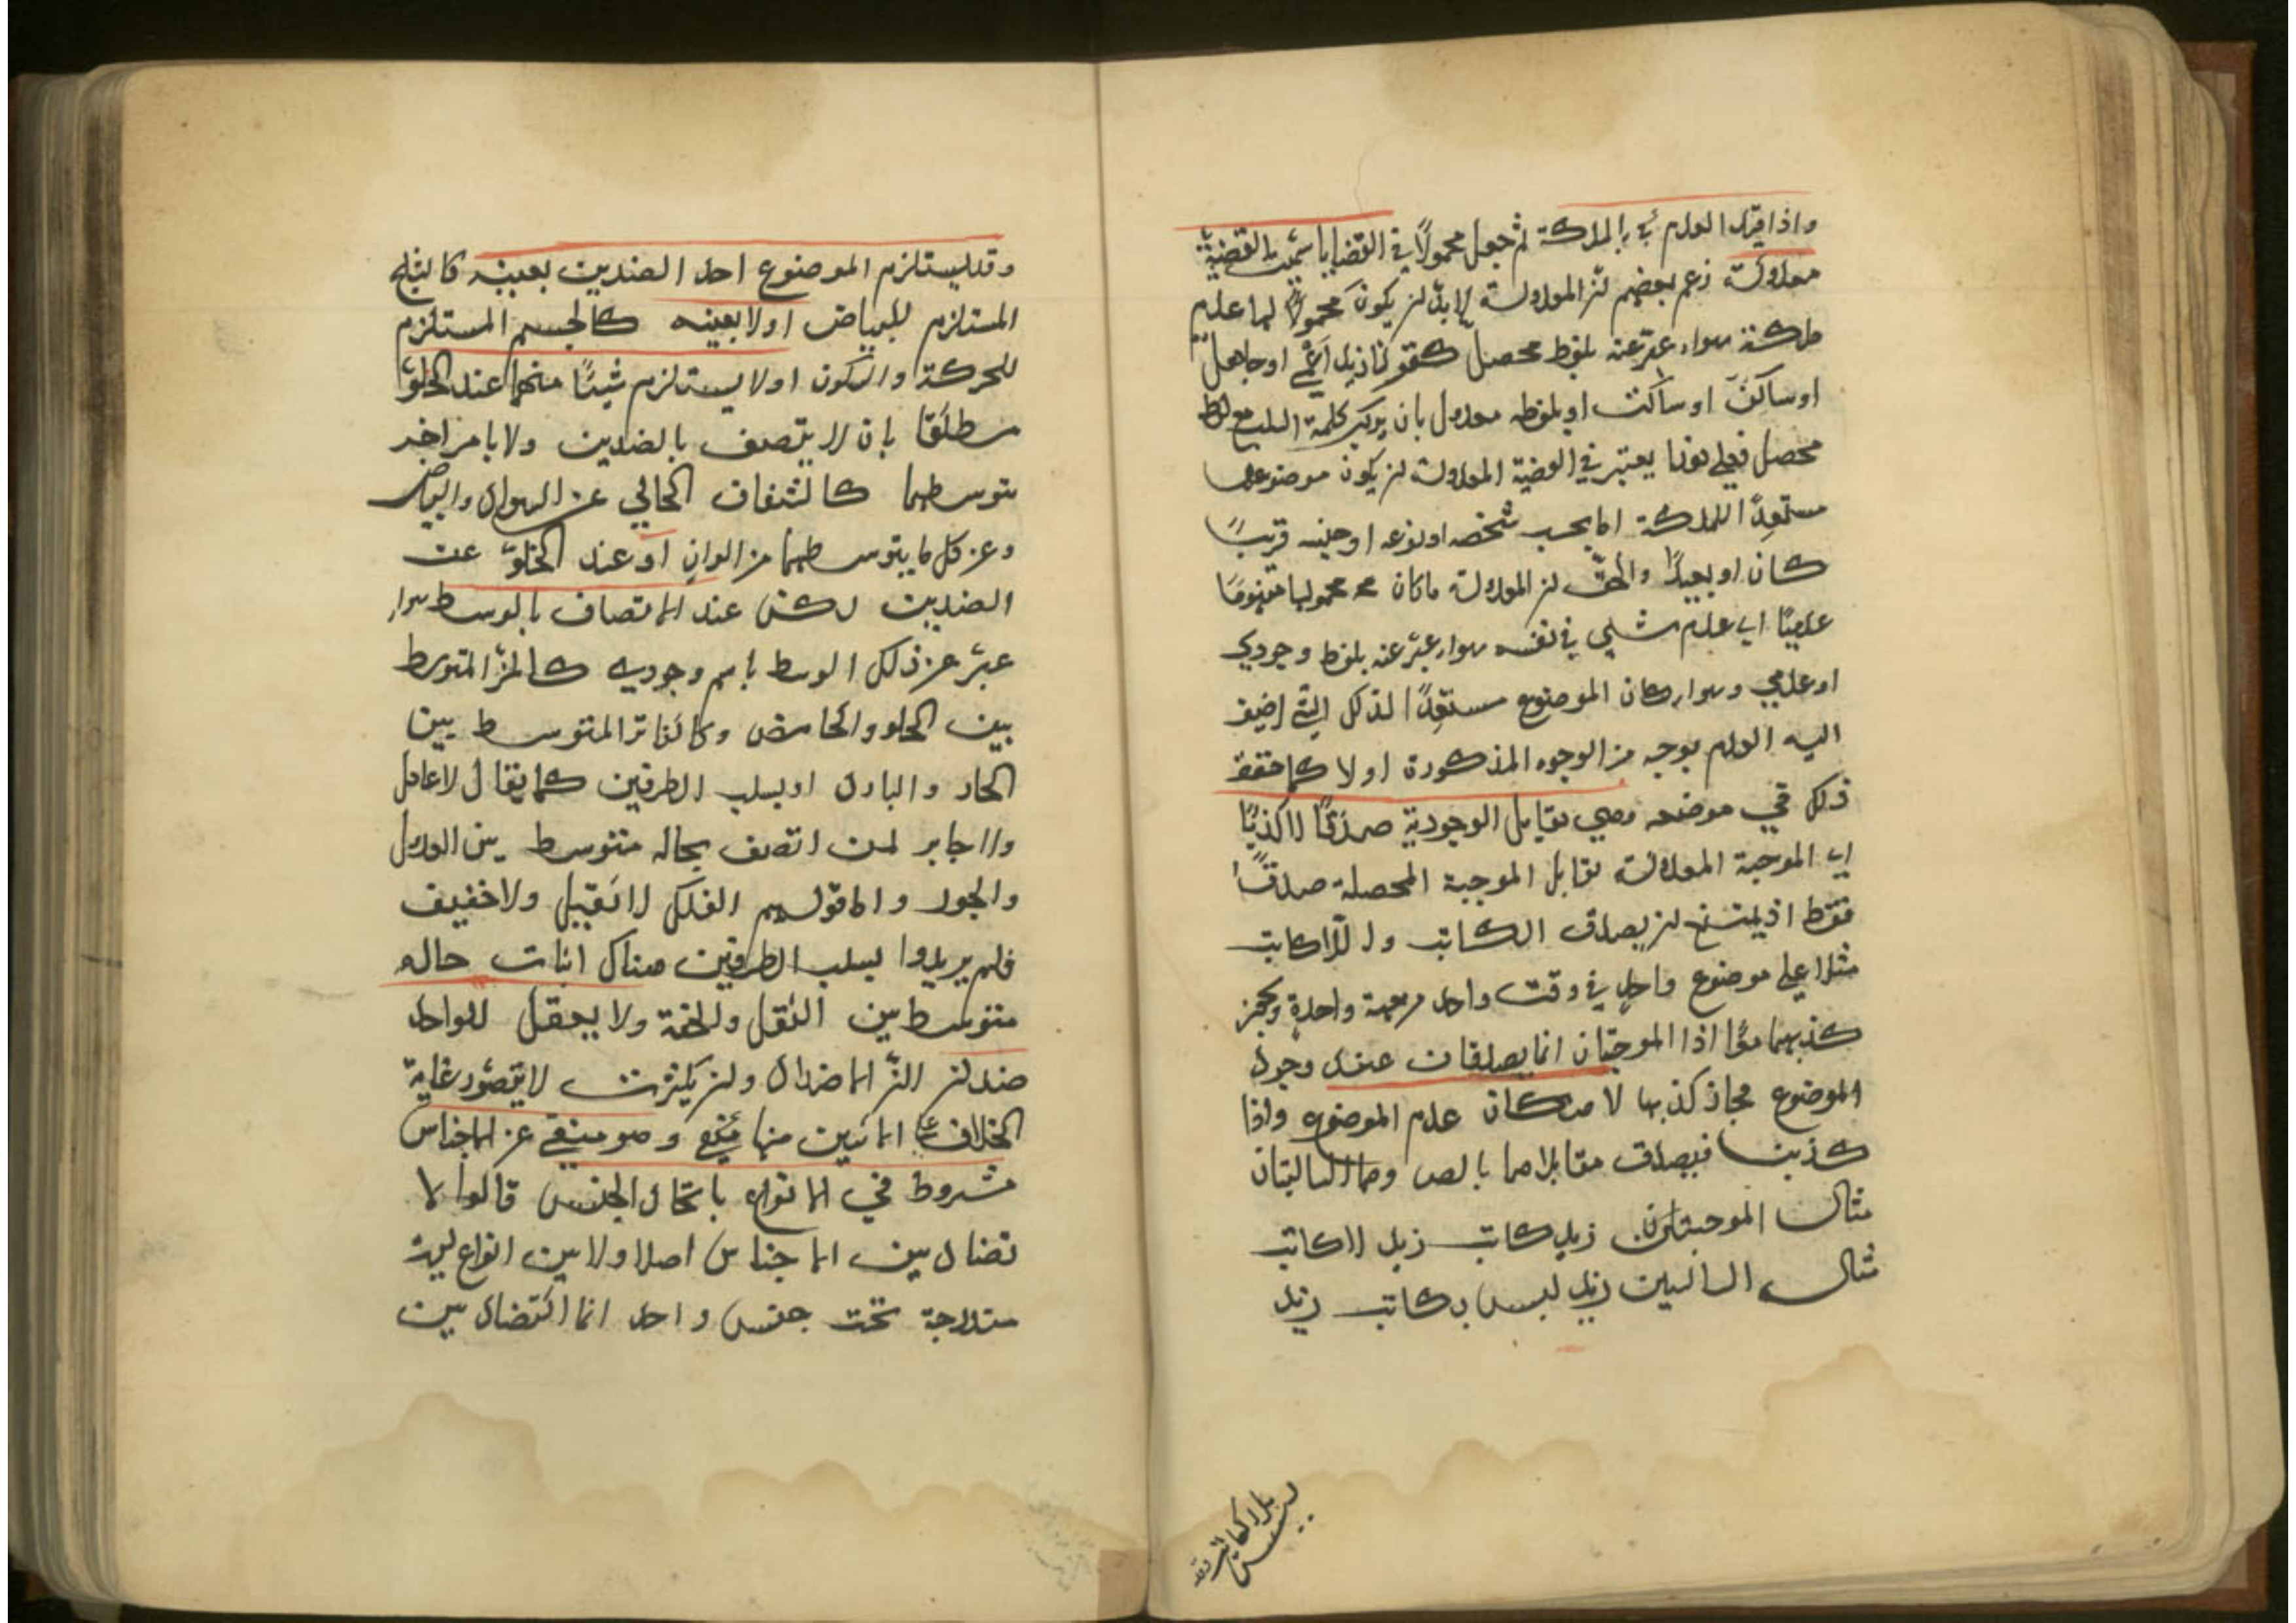 واذا قيد العدم بالملكة ثم جعل محمولا في القضايا سميت القضية
معدولة زعم بعضهم ان المعدولة لا بد ان يكون محمولها عدم
ملكة سواء عبر عنه بلفظ محصل كقولنا زيد اعمى او جاهل
او ساكن او ساكت او بلفظ معدول بان يركب كلمة السلب مع لفظ
محصل فعلى هذا يعتبر في القضية المعدولة ان يكون موضوعها
مستعدا للملكة اما بحسب شخصه او نوعه او جنسه قريبا
كان او بعيدا والحق ان المعدولة ما كان محمولها مفهوما
عدميا اي عدم شيء في نفسه سواء عبر عنه بلفظ وجودي
او عدمي وسواء كان الموضوع مستعدا لذلك الشيء اضيف
اليه العدم بوجه من الوجوه المذكورة او لا كما حقق
ذلك في موضعه وهي تقابل الوجودية صدقا لا كذبا
اي الموجبة المعدولة تقابل الموجبة المحصلة صدقا
فقط اذ يمتنع ان يصدق الكاتب واللاكاتب
مثلا على موضوع واحد في وقت واحد من جهة واحدة ويجوز
كذبهما معا اذا الموجبتان انما يصدقان عند وجود
الموضوع فجاز كذبهما لامكان عدم الموضوع واذا
كذبتا فيصدق مقابلاهما بالص وهما السالبتان
مثال الموجبتان زيد كاتب زيد لاكاتب
مثال السالبتين زيد ليس بكاتب زيد
ليس بلا كاتب
وقد يستلزم الموضوع احد الضدين بعينه كالثلج
المستلزم للبياض او لا بعينه كالجسم المستلزم
للحركة والسكون او لا يستلزم شيئا منهما عند الخلو
مطلقا بان لا يتصف بالضدين ولا بامر اخر
متوسطهما كالشفاف الخالي عن السواد والبياض
وعن كل ما يتوسطهما من الوان او عند الخلو عن
الضدين لكن عند الاتصاف بالوسط سواء
عبر عن ذلك الوسط باسم وجودي كالمز المتوسط
بين الحلو والحامض وكالفاتر المتوسط بين
الحار والبارد او بسلب الطرفين كما يقال لا عادل
ولا جاير لمن اتصف بحالة متوسط بين العدل
والجور واما قولهم الفلك لا ثقيل ولا خفيف
فلم يريدوا بسلب الطرفين هناك اثبات حاله
متوسط بين الثقل والخفة ولا يعقل للواحد
ضد لان الاضداد وان كثرت لا يتصور غاية
الخلاف الا بين منها وهو منفي عن الاجناس
مشروط في الانواع باتحاد الجنس قالوا لا
تضاد بين الاجناس اصلا ولا بين انواع ليست
مندرجة تحت جنس واحد انما التضاد بين